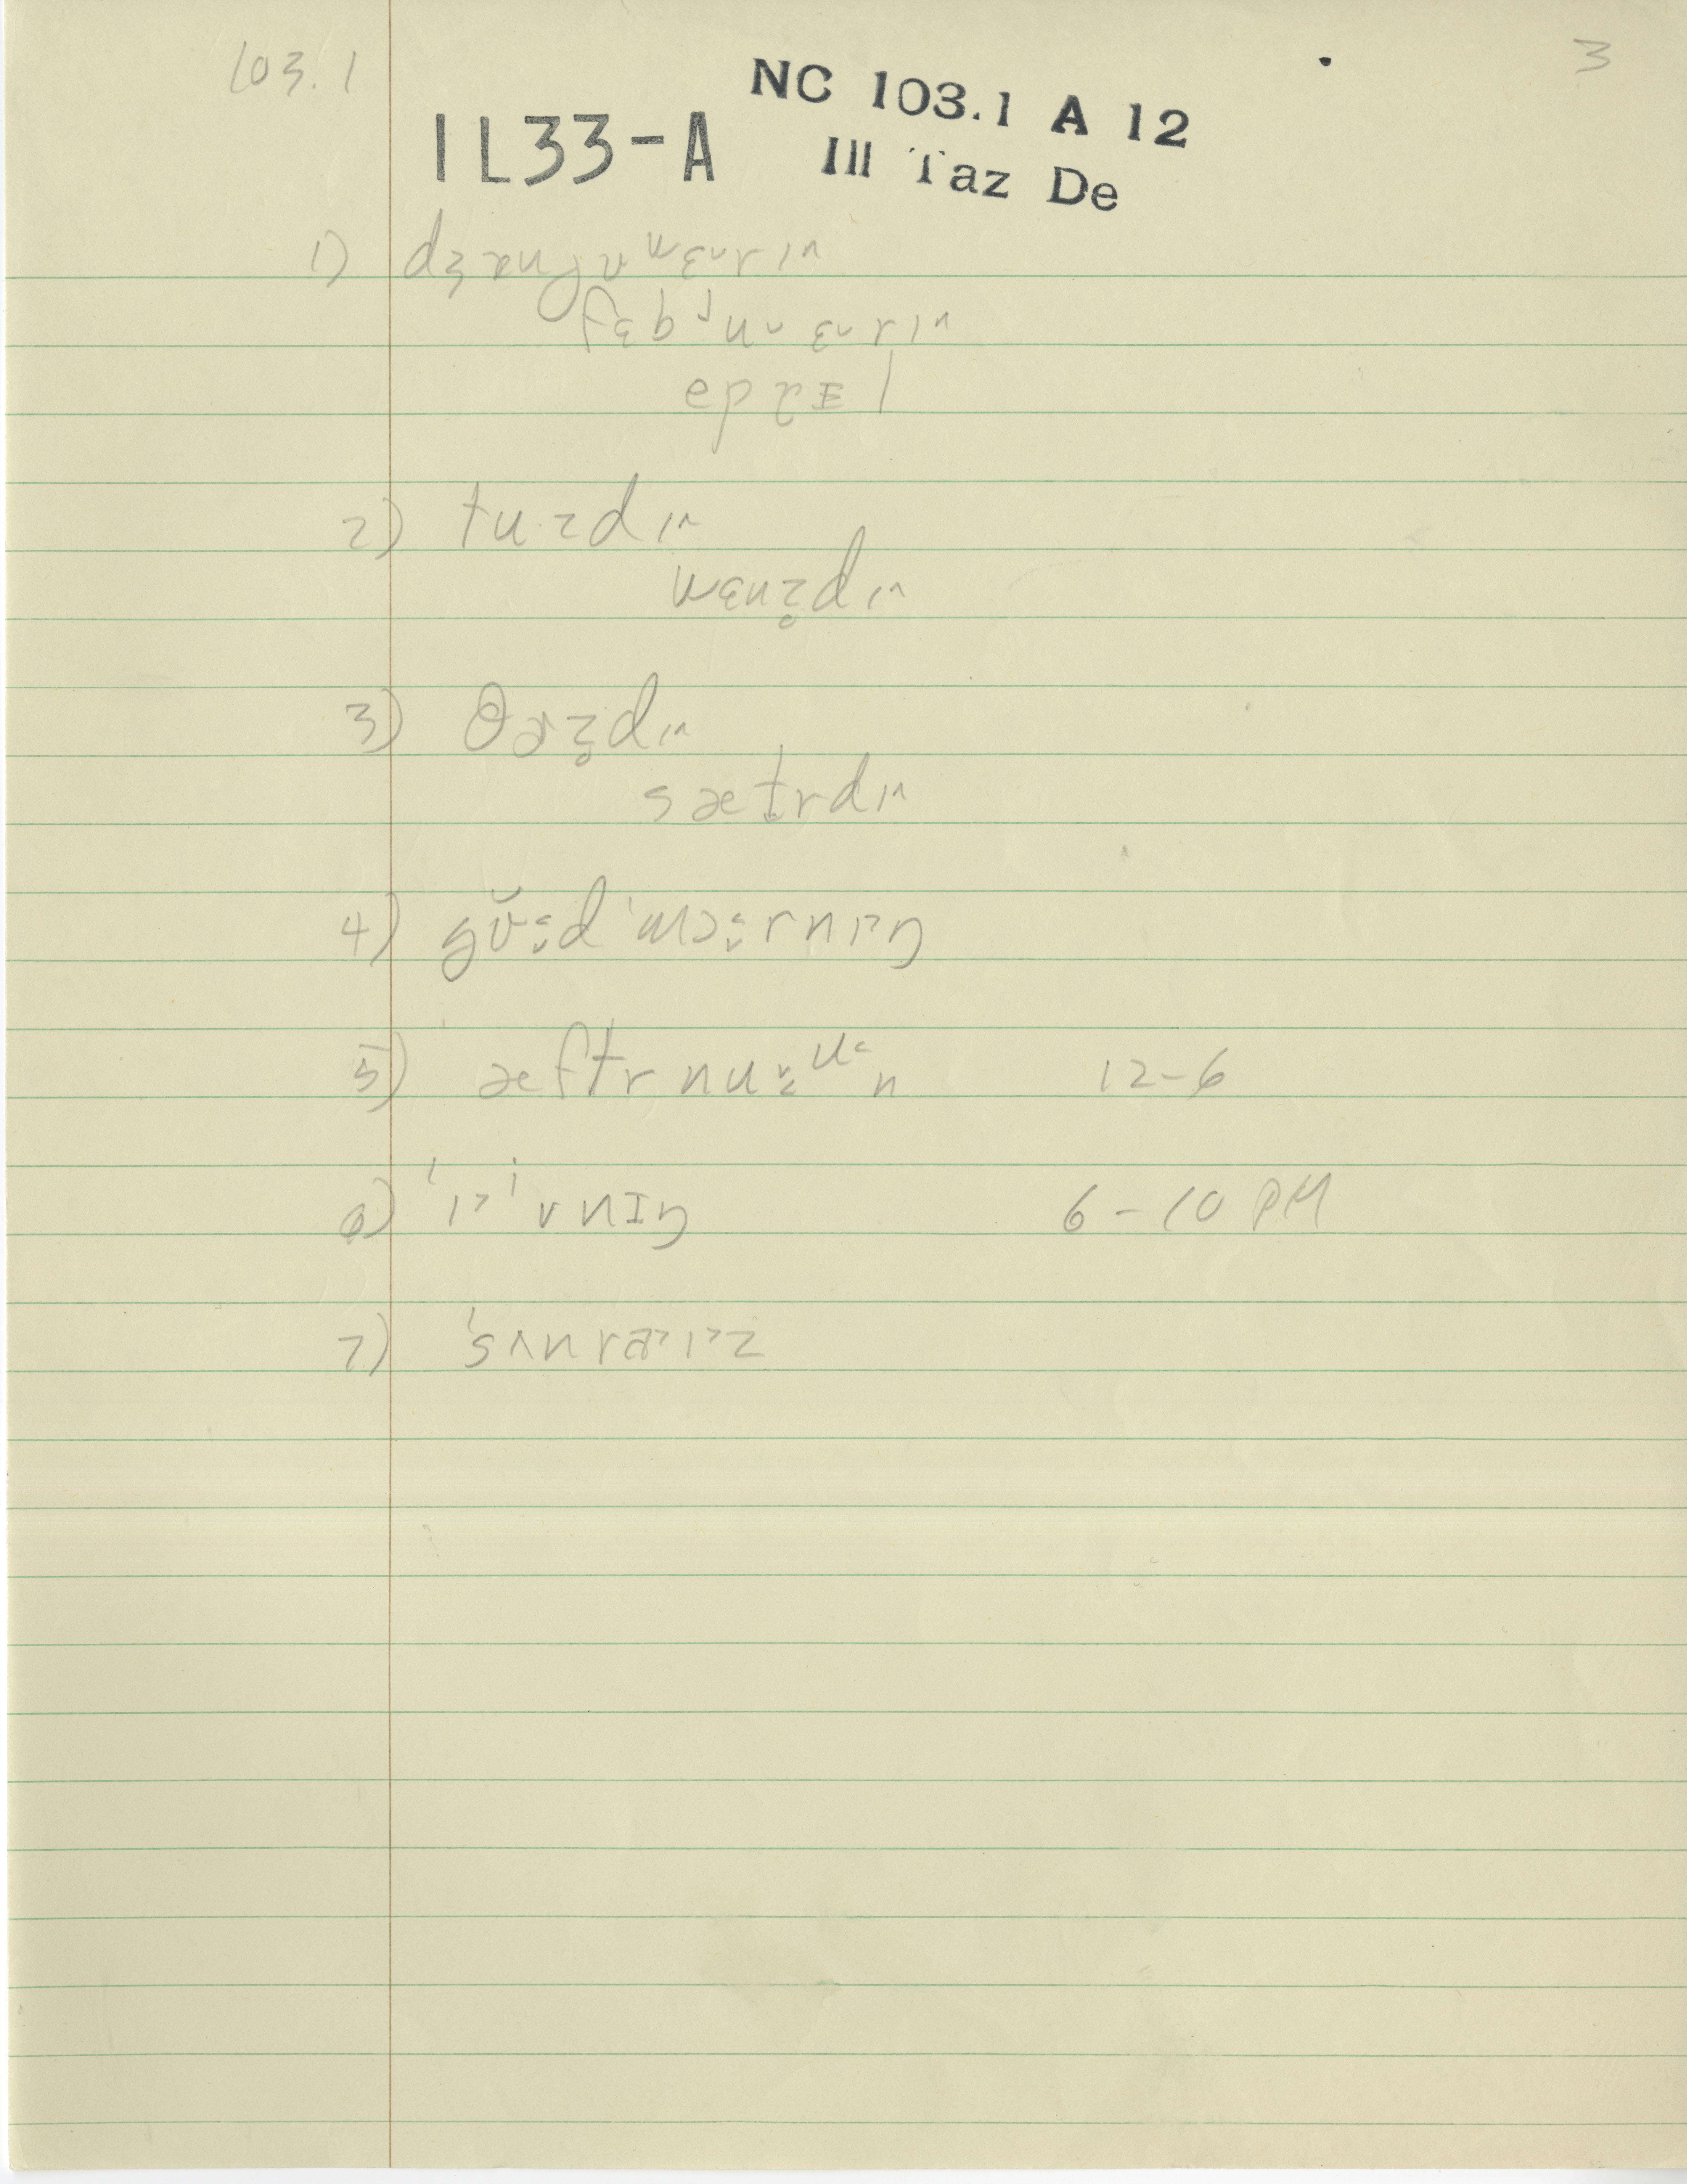 103.1
3
NC 103.1 A 12
IL33-A
Ill Taz De
1) dʒænjʊʷɛ˞rɪ^
fɛbjuᵕɛᵕrɪ^
eprɪl
2) tu·zdɪ^
wɛnz̥dɪ^
3) θɚz̥dɪ^
sæt̬rdɪ^
4) gʊ̆˞d 'mɔ˞rnɪŋ
5) æftrnu˞ᵘn 12-6
6) 'i'vnɪŋ 6-10 PM
7) 'sʌnraɪz